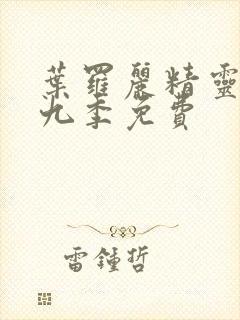 葉羅麗精靈
九季免費
雷鍾哲